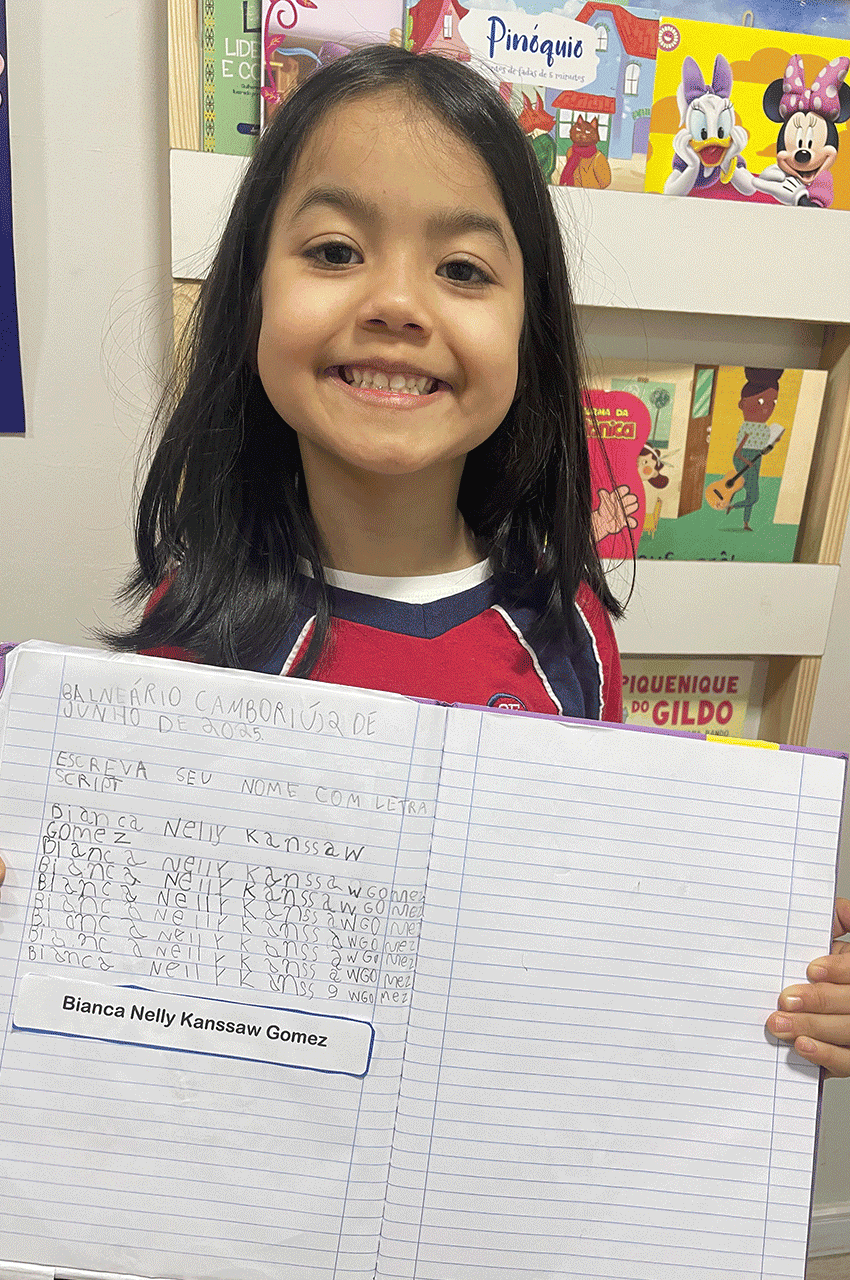 LIDE
E CO
Pinóquio
contos de fadas de 5 minutos
PIQUENIQUE
DO GILDO
BALNEÁRIO CAMBORIÚ,2 DE
JUNHO DE 2025.
ESCREVA SEU NOME COM LETRA
SCRIPT
Bianca Nelly Kanssaw
Gomez
Bianca Nelly Kanssaw Gomez
Bianca Nelly Kanssaw Gomez
Bianca Nelly Kanssaw Gomez
Bianca Nelly Kanssaw Gomez
Bianca Nelly Kanssaw Gomez
Bianca Nelly Kanssaw Gomez
Bianca Nelly Kanssaw Gomez
Bianca Nelly Kanssaw Gomez